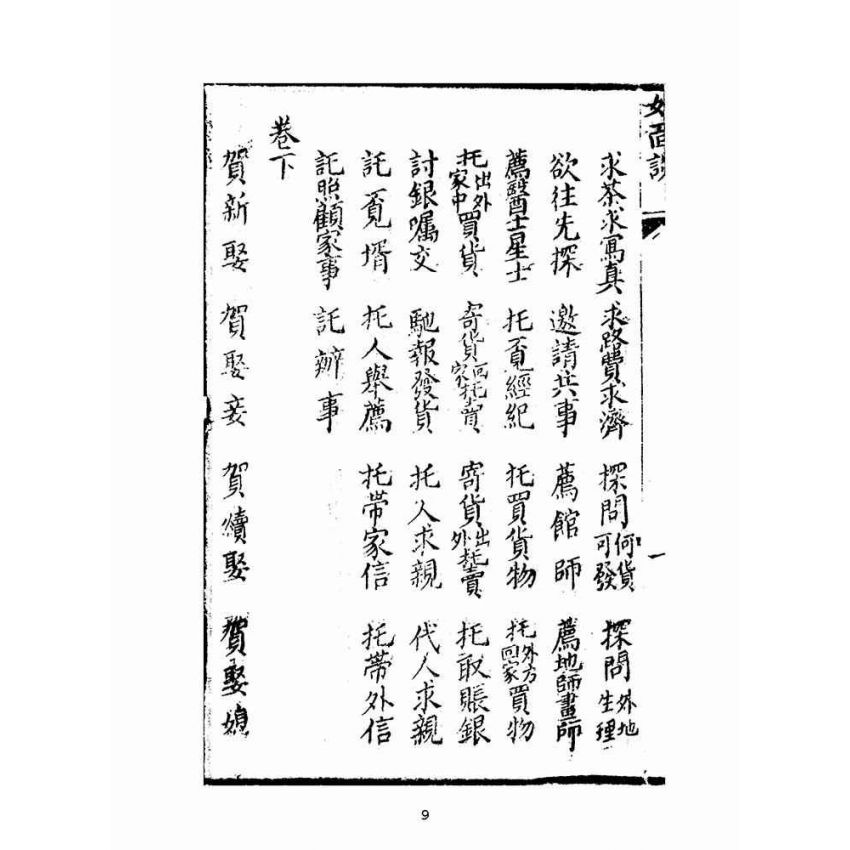 如面談
一
求茶求寫真 求路費求濟 探問何貨可發 探問外地生理
欲往先探 邀請共事 薦館師 薦地師畫師
薦醫士星士 托覓經紀 托買貨物 托外方回家買物
托出外家中買貨 寄貨向家托賣 寄貨出外托賣 托取賬銀
討銀囑交 馳報發貨 托人求親 代人求親
託覓壻 托人舉薦 托帶家信 托帶外信
託照顧家事 託辦事
卷下
賀新娶 賀娶妾 賀續娶 賀娶媳
9